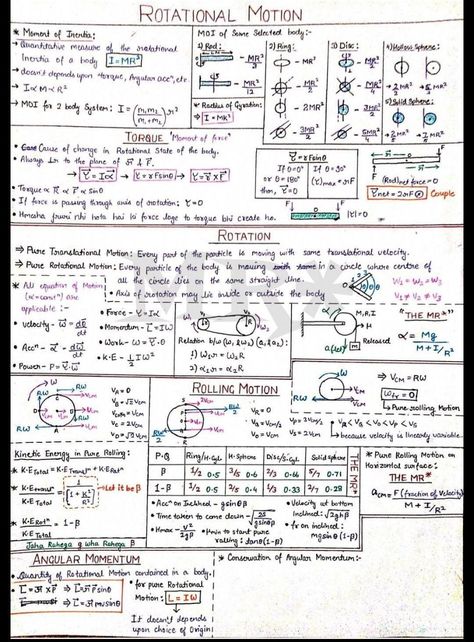 ROTATIONAL MOTION
* Moment of Inertia:
→ Quantitative measure of the rotational
Inertia of a body I = MR²
→ doesn't depends *torque, Angular accⁿ, etc
→ I ∝ M ∝ R²
→ MOI for 2 body System: I = (m₁m₂/m₁+m₂) r²
MOI of Some Selected body:-
1) Rod:
MR²/3
MR²/12
* Radius of Gyration:
I = MK²
2) Ring:
MR²
MR²/2
2MR²
3MR²/2
3) Disc:
MR²/2
MR²/4
3MR²/2
5MR²/4
4) Hollow Sphere:
2/3 MR² 5/3 MR²
5) Solid Sphere:
2/5 MR² 7/5 MR²
TORQUE 'Moment of force'
• Cause of change in Rotational State of the body.
• Always ⊥r to the plane of r⃗ & F⃗.
→ τ = Iα → τ = rFsinθ → τ⃗ = r⃗ × F⃗
• Torque ∝ R ∝ F ∝ sinθ
• If force is passing through axis of rotation: τ = 0
• Hmesha jruri nhi hota hai ki force lage to torque bhi create ho.
τ = rFsinθ
If θ = 0°
or θ = 180°
then, τ = 0
If θ = 90°
(τ)max = rF
(Rod) net force = 0
τnet = 2rF Couple
|τ| = 0
ROTATION
⇒ Pure Translational Motion: Every part of the particle is moving with same translational velocity.
⇒ Pure Rotational Motion: Every particle of the body is moving in a circle where centre of
all the circle lies on the same straight line.
• Axis of rotation may lie inside or outside the body
W₁ = W₂ = W₃
V₁ ≠ V₂ ≠ V₃
* All equation of Motion
("α = const") are
applicable :-
• velocity - ω⃗ = dθ/dt
• Accⁿ - α⃗ = dω/dt
• Power - P = τ⃗·ω⃗
• Force - τ⃗ = Iα⃗
• Momentum - L⃗ = Iω⃗
• Work - W = τ⃗·θ
• K.E - 1/2 Iω²
Relation b/w (ω₁ & ω₂) (α₁ & α₂)
1) ω₁r = ω₂R
2) α₁r = α₂R
M, R, I
a(↓)
M
Released
"THE MR*"
α = Mg / M + I/R²
ROLLING MOTION
V_A = 0
V_B = √2 Vcm
V_C = 2Vcm
V_D = √2Vcm
V_R = 0
V_P = 3Vcm/2
V_S = 2Vcm
→ Vcm = RW
→ Pure rolling motion
• because velocity is linearly variable.
Kinetic Energy in Pure Rolling:
* K.E Total = K.E Transⁿ + K.E Rotⁿ
* K.E Transⁿ / K.E Total = 1 / 1 + K²/R² → Let it be β
* K.E Rotⁿ / K.E Total = 1 - β
Jaha Rahega g wha Rahega β
P.Q Ring/H.Cyl H-Sphere Disc/S.Cyl Solid sphere
β 1/2 0.5 3/5 0.6 2/3 0.66 5/7 0.71
1-β 1/2 0.5 2/5 0.4 1/3 0.33 2/7 0.28
THE MR*
• Accⁿ on Inclined - gsinθβ
• Time taken to come down - √(2S/gsinθβ)
• Hmax - v²/2gβ
• μmin to start pure
rolling: tanθ(1-β)
• Velocity at bottom
inclined: √2ghβ
• fr on inclined:
mgsinθ(1-β)
* Pure Rolling Motion on
Horizontal surface:
THE MR*
acm = F(fraction of velocity) / M + I/R²
ANGULAR MOMENTUM
* Quantity of Rotational Motion contained in a body.
* L⃗ = r⃗ × P⃗ ⇒ L⃗ = rPsinθ
⇒ L⃗ = r mvsinθ
• for pure Rotational
Motion: L = Iω
It doesn't depends
upon choice of Origin
* Conservation of Angular Momentum:-